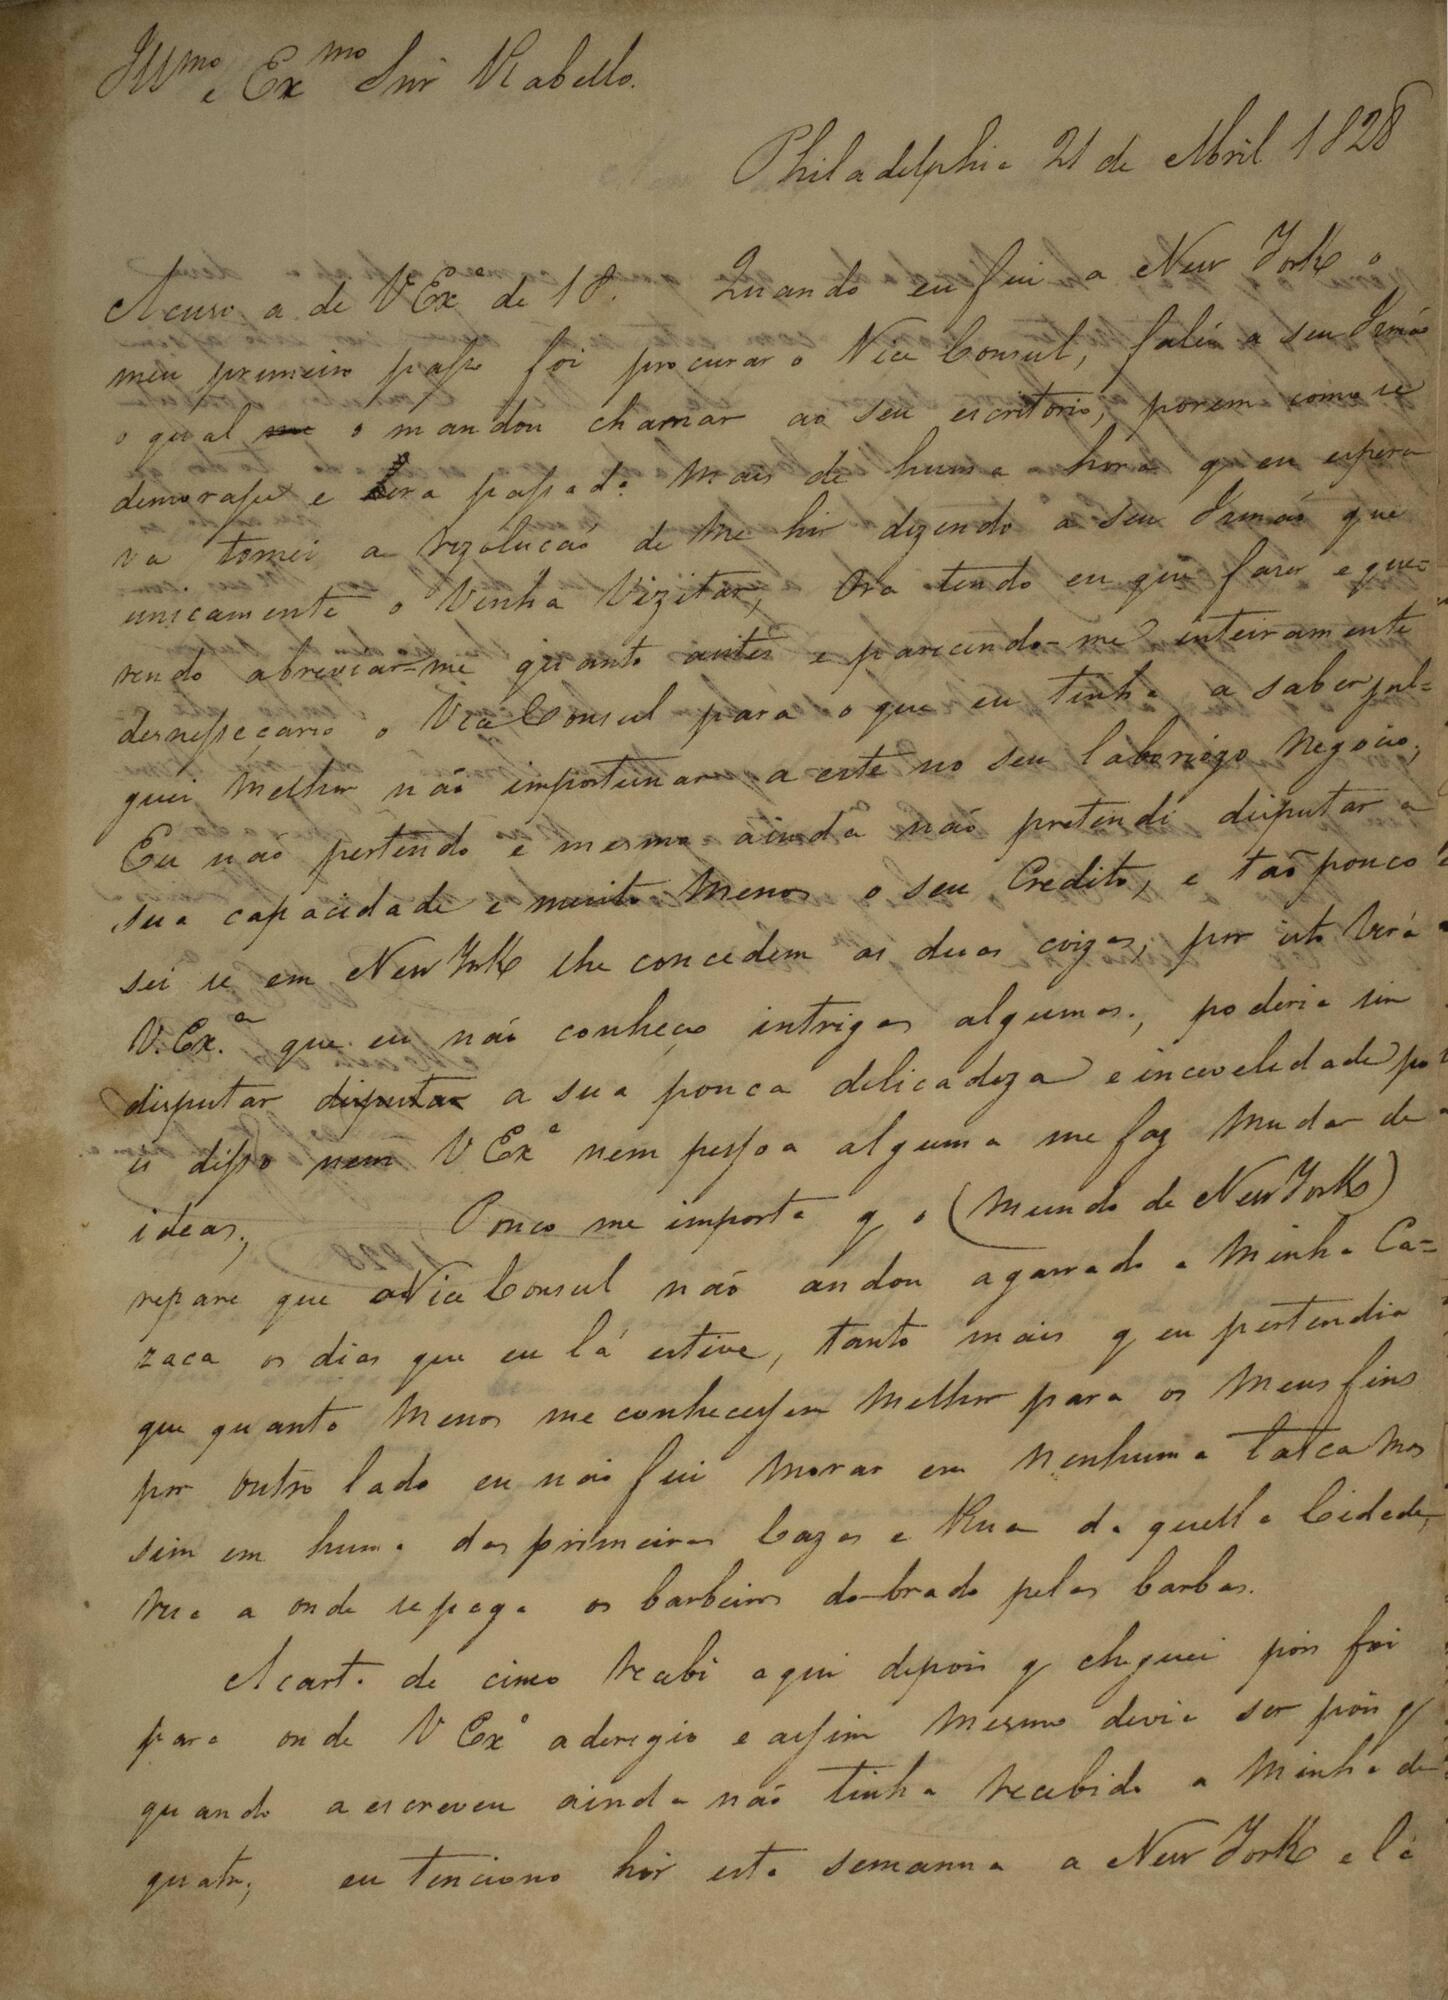 Illmo e Exmo Snr Rabello.
Philadelphia 21 de Abril 1828
Acuso a de V Exa de 18. Quando eu fui a New York o
meu premeiro passo foi procurar o Vice Consul, faléi a seu Irmão
o qual me o mandou chamar ao seu escritorio, porem como se
demorasse e era passado mais de huma hora q eu espera
va tomei a rezolucaó de me hir dizendo a seu Irmaó que
unicamente o Vinha Vizitar, Ora tendo eu que fazer e que=
rendo abreviar-me quanto antes e parecendo-me inteiramente
desnessecario o Vice Consul para o que eu tinha a saber jul=
guei melhor náo importunar a este no seu laboriozo negocio;
Eu náo pertendo e mesmo ainda náo pretendi disputar a
sua capacidade e muito menos o seu Credito, e taõ pouco
sei se em New York lhe concedem as duas coizas, por isto Verá
V. Exa. que eu náo conheço intrigas algumas, poderia sim
disputar disputar a sua pouca delicadeza e incevelidade po
is disso nem V Exa nem pessoa alguma me faz mudar de
ideas; Pouco me importa q o (mundo de New York)
repare que o Vice Consul náo andou agarrado a minha Ca=
zaca os dias que eu lá estive, tanto mais q eu pertendia
que quanto menos me conhecessem melhor para os meus fins
por outro lado eu náo fui morar em nenhuma tasca mas
sim em huma das primeiras Cazas e Rua da quella Cidade,
rua a onde se paga os barbeiros dobrado pelas barbas.
A carta de cinco recebi aqui depois q cheguei pois foi
para onde V Exa a deregio e assim mesmo devia ser pois q
quando a escreveu ainda náo tinha recebido a minha de
quatro; eu tenciono hir esta semanna a New York e lá